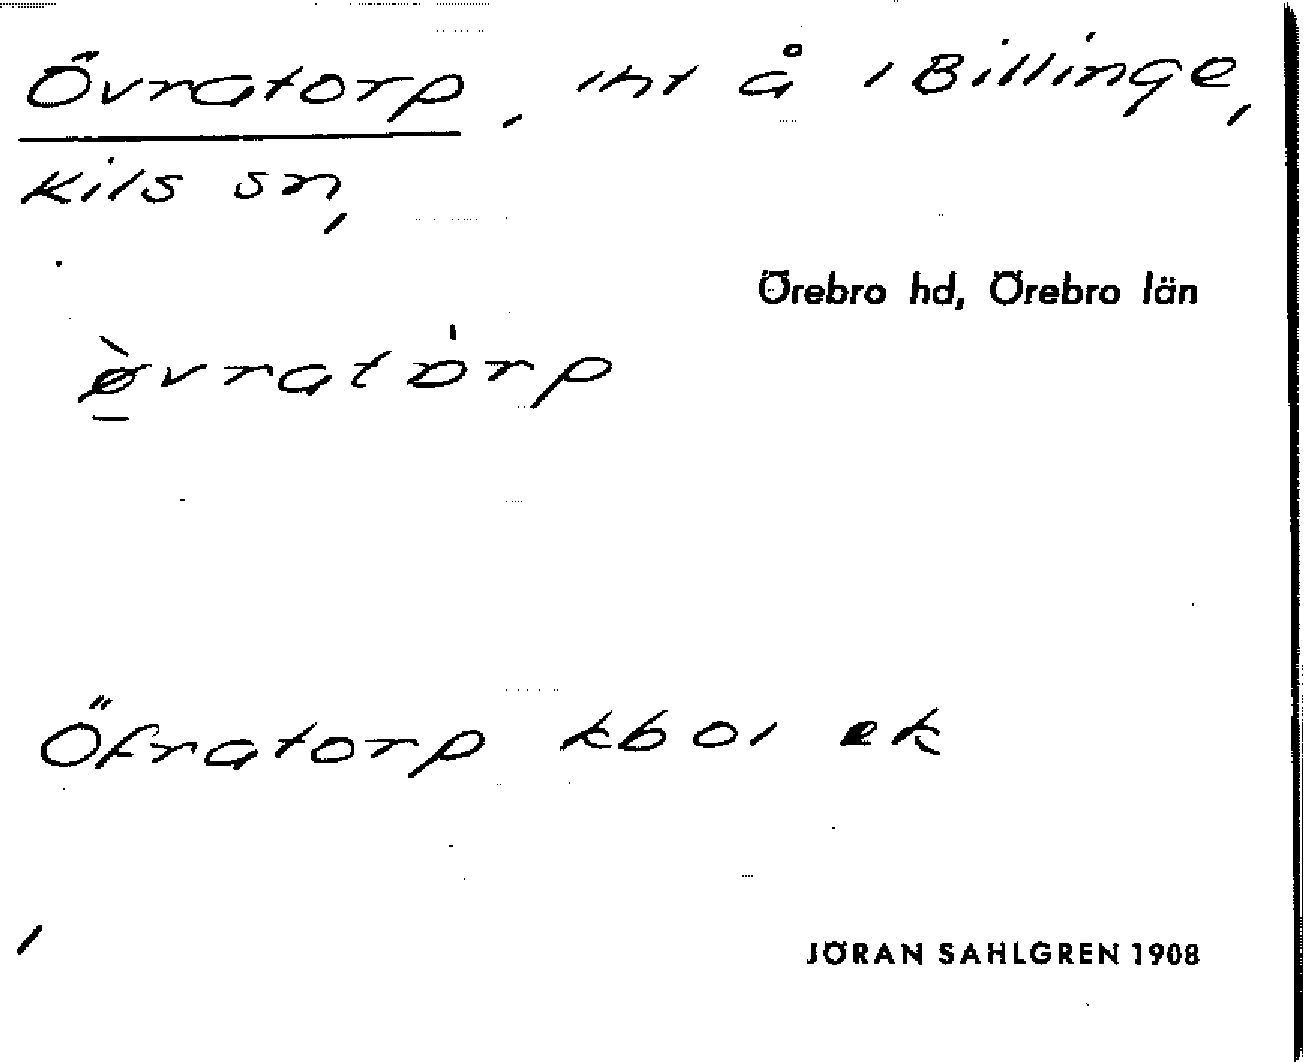 Övratorp, int å i Billinge,
Kils sn,
Örebro hd, Örebro län
ø̱̀vratòrp
Öfratorp kboi ek
JÖRAN SAHLGREN 1908